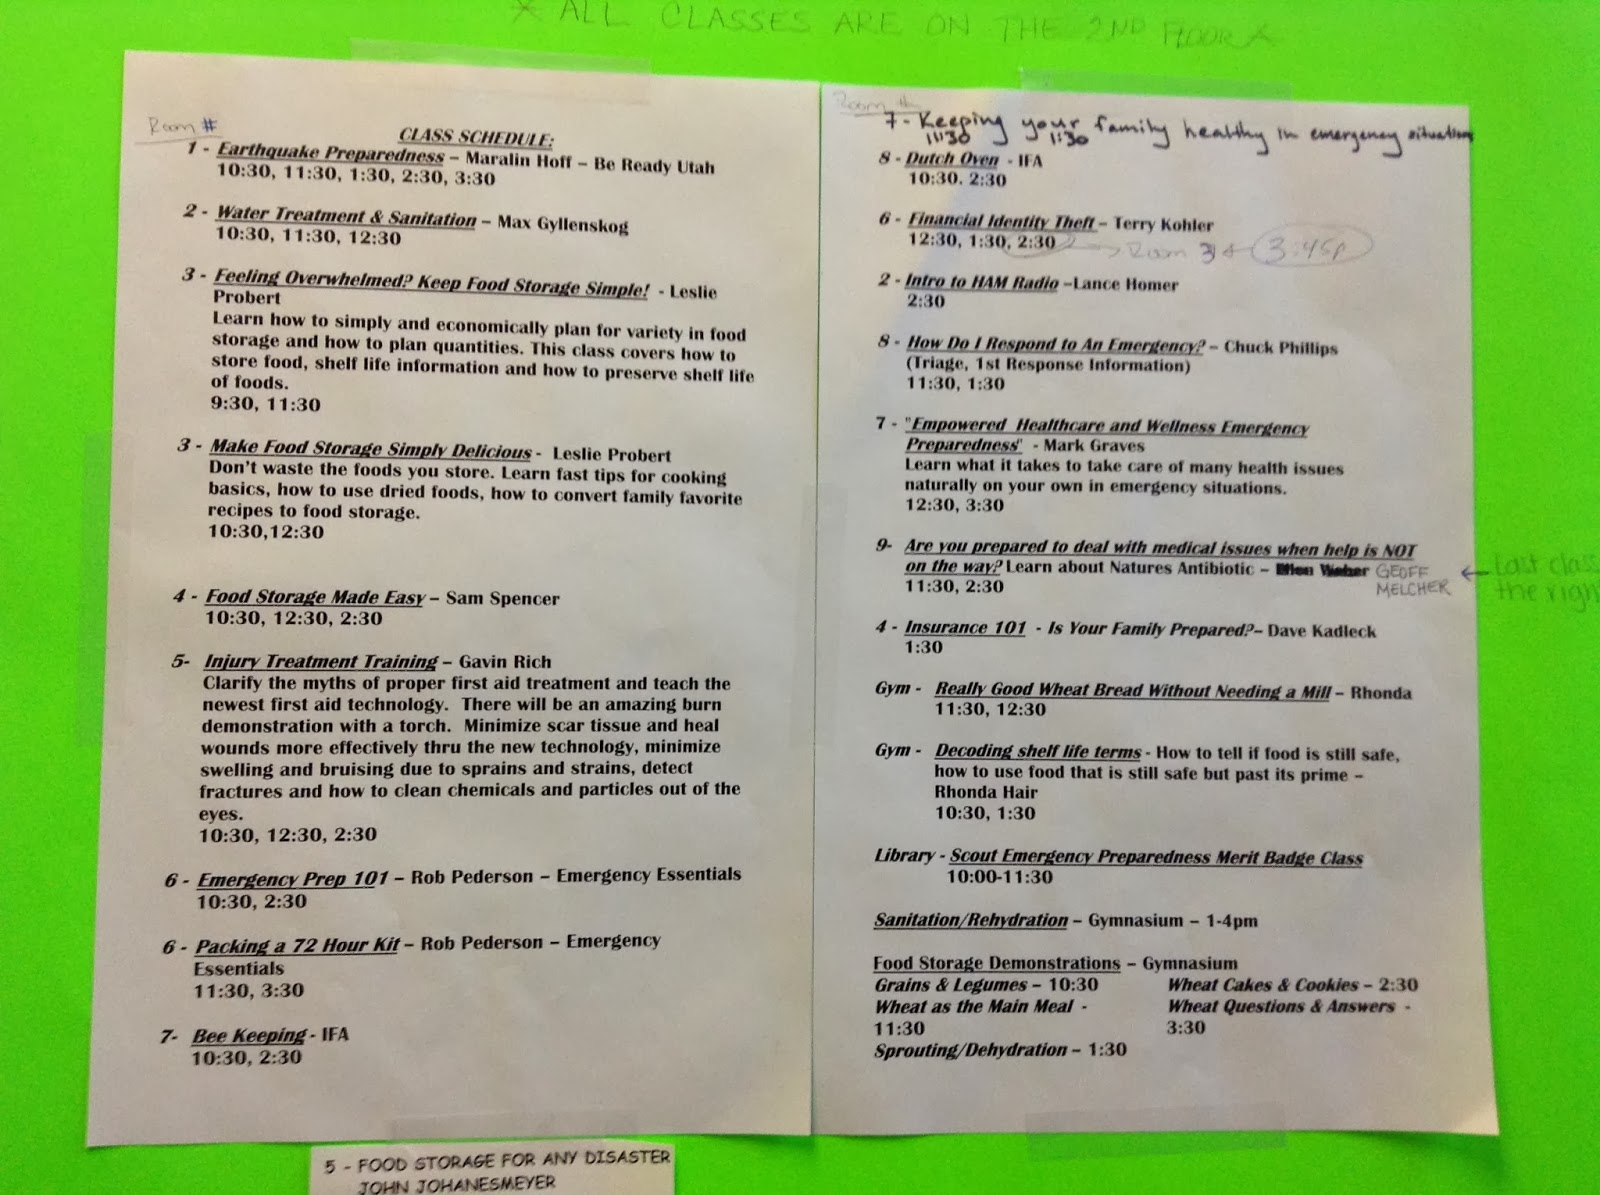 * ALL CLASSES ARE ON THE 2ND FLOOR *
Room #
CLASS SCHEDULE:
1 - Earthquake Preparedness – Maralin Hoff – Be Ready Utah
10:30, 11:30, 1:30, 2:30, 3:30
2 - Water Treatment & Sanitation – Max Gyllenskog
10:30, 11:30, 12:30
3 - Feeling Overwhelmed? Keep Food Storage Simple! - Leslie
Probert
Learn how to simply and economically plan for variety in food
storage and how to plan quantities. This class covers how to
store food, shelf life information and how to preserve shelf life
of foods.
9:30, 11:30
3 - Make Food Storage Simply Delicious - Leslie Probert
Don't waste the foods you store. Learn fast tips for cooking
basics, how to use dried foods, how to convert family favorite
recipes to food storage.
10:30,12:30
4 - Food Storage Made Easy – Sam Spencer
10:30, 12:30, 2:30
5- Injury Treatment Training – Gavin Rich
Clarify the myths of proper first aid treatment and teach the
newest first aid technology. There will be an amazing burn
demonstration with a torch. Minimize scar tissue and heal
wounds more effectively thru the new technology, minimize
swelling and bruising due to sprains and strains, detect
fractures and how to clean chemicals and particles out of the
eyes.
10:30, 12:30, 2:30
6 - Emergency Prep 101 – Rob Pederson – Emergency Essentials
10:30, 2:30
6 - Packing a 72 Hour Kit – Rob Pederson – Emergency
Essentials
11:30, 3:30
7- Bee Keeping - IFA
10:30, 2:30
5 - FOOD STORAGE FOR ANY DISASTER
JOHN JOHANESMEYER
Room #
7 - Keeping your family healthy in emergency situations
11:30 1:30
8 - Dutch Oven - IFA
10:30. 2:30
6 - Financial Identity Theft – Terry Kohler
12:30, 1:30, 2:30 → Room 3 3:45p
2 - Intro to HAM Radio –Lance Homer
2:30
8 - How Do I Respond to An Emergency? – Chuck Phillips
(Triage, 1st Response Information)
11:30, 1:30
7 - "Empowered Healthcare and Wellness Emergency
Preparedness" - Mark Graves
Learn what it takes to take care of many health issues
naturally on your own in emergency situations.
12:30, 3:30
9- Are you prepared to deal with medical issues when help is NOT
on the way? Learn about Natures Antibiotic – GEOFF
MELCHER
11:30, 2:30
← Last class
the right
4 - Insurance 101 - Is Your Family Prepared?– Dave Kadleck
1:30
Gym - Really Good Wheat Bread Without Needing a Mill – Rhonda
11:30, 12:30
Gym - Decoding shelf life terms - How to tell if food is still safe,
how to use food that is still safe but past its prime –
Rhonda Hair
10:30, 1:30
Library - Scout Emergency Preparedness Merit Badge Class
10:00-11:30
Sanitation/Rehydration – Gymnasium – 1-4pm
Food Storage Demonstrations – Gymnasium
Grains & Legumes – 10:30 Wheat Cakes & Cookies – 2:30
Wheat as the Main Meal - Wheat Questions & Answers -
11:30 3:30
Sprouting/Dehydration – 1:30